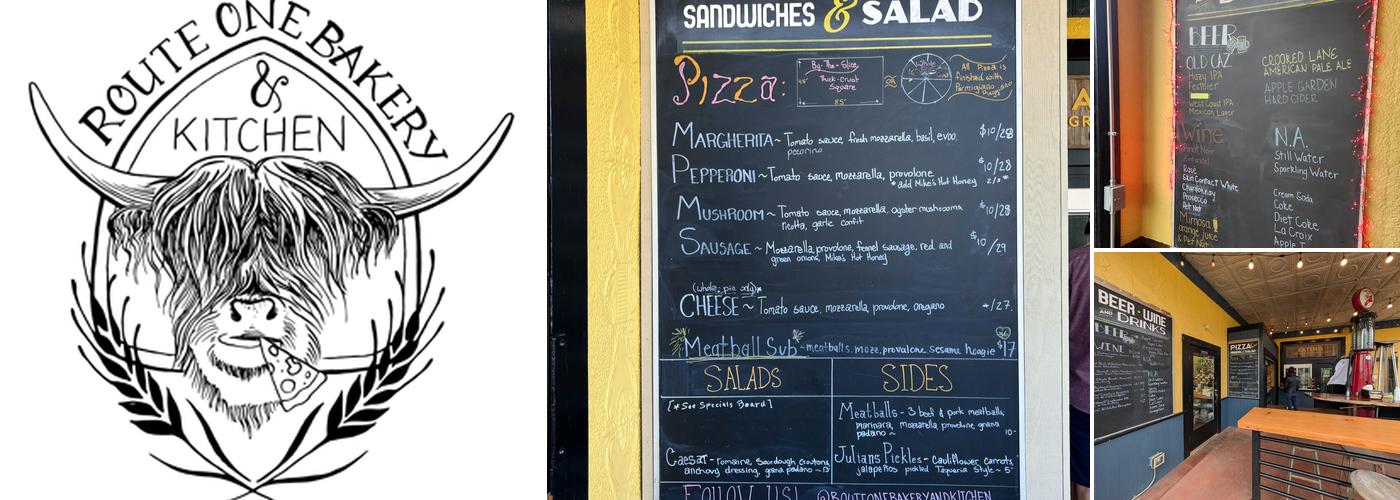 ROUTE ONE BAKERY
&
KITCHEN
SANDWICHES & SALAD
Pizza:
By-The-Slice
Thick-crust
Square
8.5"
Whole
All Pizza is
finished with
Parmigiano
Reggiano
MARGHERITA~ Tomato sauce, fresh mozzarella, basil, evoo, $10/28
pecorino
PEPPERONI ~ Tomato sauce, mozzarella, provolone $10/28
*add Mike's Hot Honey 2/3*
MUSHROOM ~ Tomato sauce, mozzarella, oyster mushrooms $10/28
ricotta, garlic confit
SAUSAGE ~ Mozzarella, provolone, fennel sausage, red and $10/29
green onions, Mike's Hot Honey
(whole pie only)*
CHEESE ~ Tomato sauce, mozzarella, provolone, oregano -/27
Meatball Sub · meatballs, mozz, provalone sesame hoagie $17
SALADS
[*See Specials Board]
Caesar - romaine, sourdough croutons,
anchovy dressing, grana padano ~
SIDES
Meatballs - 3 beef & pork meatballs,
marinara, mozzarella provolone, grana
padano ~ 10-
Julians Pickles - Cauliflower, carrots,
jalapeños pickled Taqueria Style ~ 5
FOLLOW US! @ROUTEONEBAKERYANDKITCHEN
BEER
OLD CAZ
Hazy IPA
Festbier
West Coast IPA
Mexican Lager
CROOKED LANE
AMERICAN PALE ALE
APPLE GARDEN
HARD CIDER
Wine
Pinot Noir
Zinfandel
Rosé
Skin Contact White
Chardonnay
Prosecco
Pet Nat
Mimosa
orange juice
& Pet Nat
N.A.
Still Water
Sparkling Water
Cream Soda
Coke
Diet Coke
La Croix
BEER - WINE
AND DRINKS
BEER
WINE
N.A.
PIZZA